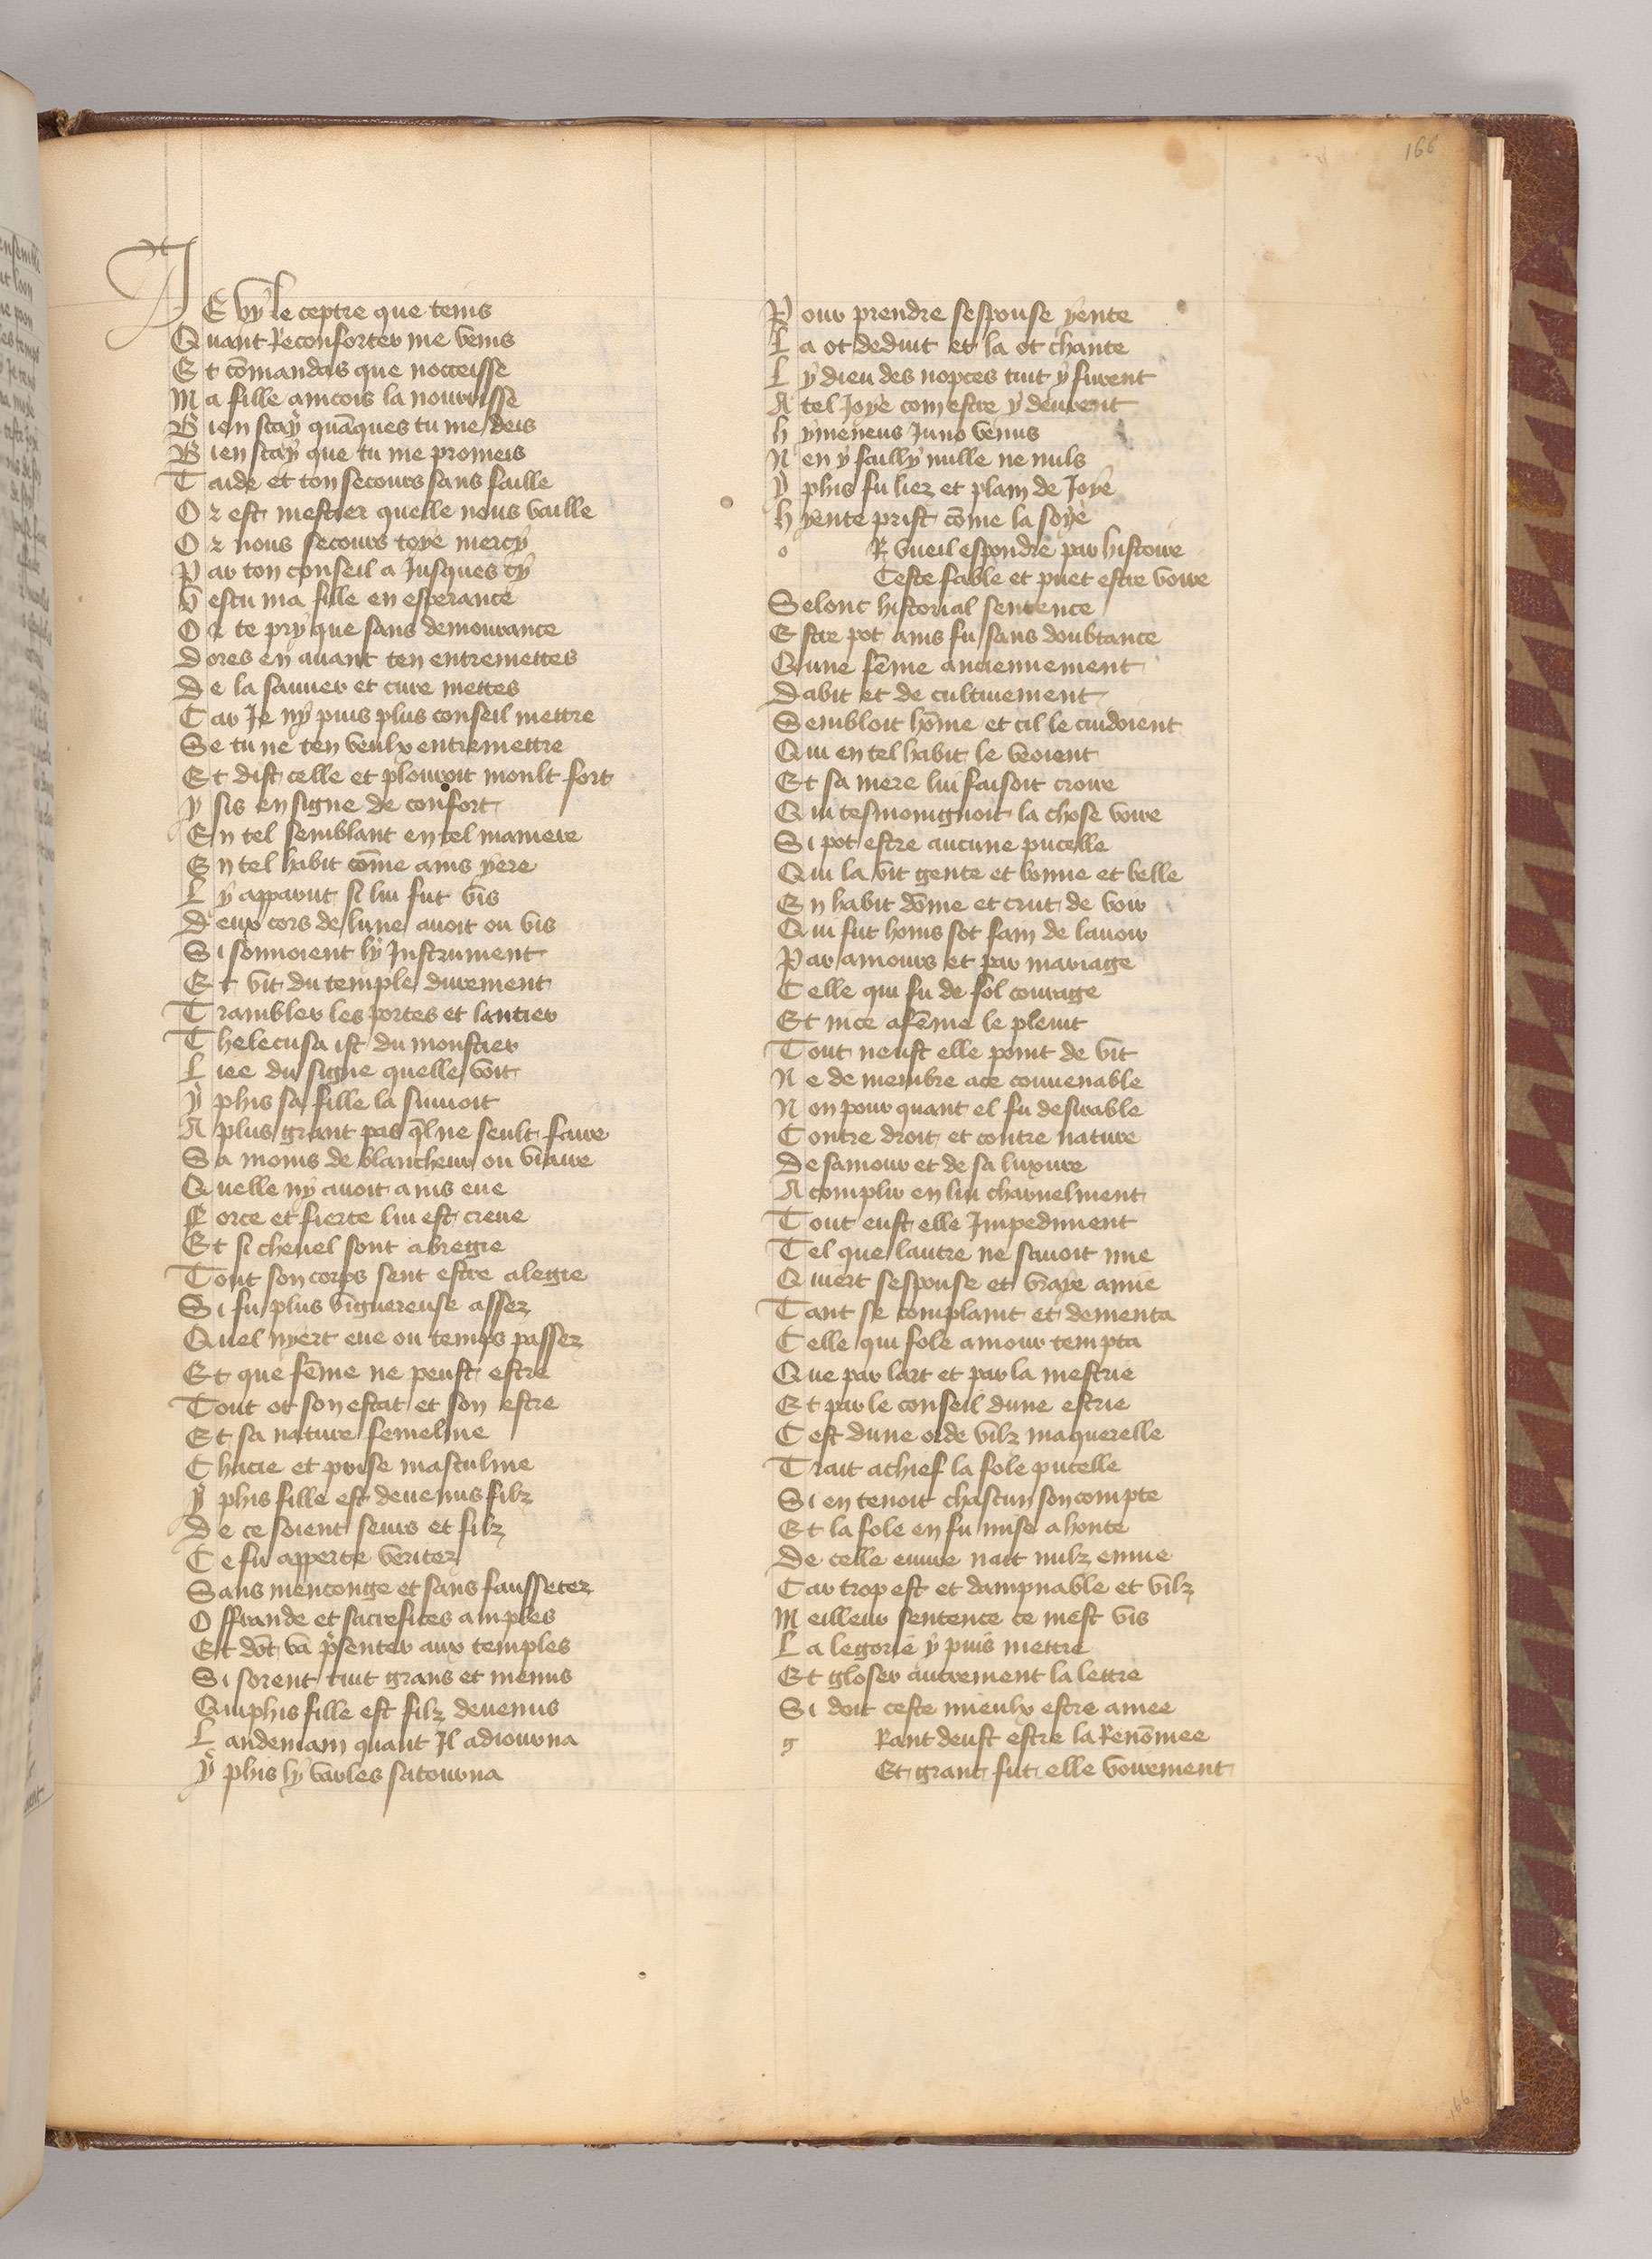 166
JE vy le ceptre que tenis
Quant Reconforter me venis
Et cōmandas que nocceisse
Ma fille aincois la nourrisse
Bien scay quāques tu me deis
Bien scay que tu me promeis
Taide et ton secours sans faille
Or est mestier quelle nous vaille
Or nous secours toye mercy
Par ton conseil a Jusques cy
Vescu ma fille en esperance
Or te pry que sans demourance
Dores en auant ten entremettes
De la sauuer et cure mettes
Car Je ny puis plus conseil mettre
Se tu ne ten veulx entremettre
Et dist celle et plouroit moult fort
ysis en signe de confort
En tel semblant en tel maniere
En tel habit cōme ains yere
Ly apparut si lui fut vis
Deux cors de lune auoit ou vis
Si sonnoient ly Instrument
Et vit du temple durement
Trambler les portes et lantier
Thelecusa ist du moustier
Liee du signe quelle voit
yphis sa fille la suiuoit
A plus grant pas q̄l ne seult faire
Sa moins de blancheur ou viaire
Quelle ny auoit ains eue
Force et fierte lui est creue
Et si cheuel sont abregie
Tout son corps sent estre alegie
Si fu plus viguereuse assez
Quel nyert eue ou temps passez
Et que fēme ne peust estre
Tout ot son estat et son estre
Et sa nature femeline
Chacie et prise masculine
yphis fille est deuenus filz
De ce soient seurs et filz
Ce fu apperte veritez
Sans menconge et sans faussetez
Offrande et sacrefices amples
Et dōt vā p̄senter aux temples
Si sorent tuit grans et menus
Quiphis fille est filz deuenus
Landemain quant Il adiourna
yphis ly varles satourna
Pour prendre sespouse yente
La ot deduit et la ot chante
Ly dieu des nopces tuit y furent
A tel Joye com estre y deurent
hymeneus Juno venus
Nen y failly nulle ne nuls
yphis fu liez et plain de Joye
hyente prist cōme la soye
o R vueil espondre par histoire
Ceste fable et puet estre voire
Selonc historial sentence
Estre pot ains fu sans doubtance
Qune fēme anciennement
Dabit et de cultiuement
Sembloit hōme et cil le cuidoient
Qui en tel habit le veoient
Et sa mere lui faisoit croire
Qui tesmoingnoit la chose voire
Si pot estre aucune pucelle
Qui la vit gente et bonne et belle
En habit dōme et crut de voir
Qui fut homs sot fain de lauoir
Par amours et par mariage
Celle qui fu de fol courage
Et nice a fēme le pleuit
Tout neust elle point de vit
Ne de membre ace conuenable
Non pour quant el fu desirable
Contre droit et contre nature
De samour et de sa luxure
Acomplir en lui charnelment
Tout eust elle Impediment
Tel que lautre ne sauoit mie
Quiert sespouse et vraye amie
Tant se complaint et dementa
Celle qui fole amour tempta
Que par lart et par la mestrie
Et par le conseil dune estrie
Cest dune orde vilz maquerelle
Trait achief la fole pucelle
Si en tenoit chascun son compte
Et la fole en fu mise a honte
De celle euure nait nulz enuie
Car trop est et dampnable et vilz
Meilleur sentence ce mest vis
Lalegorie y puis mettre
Et gloser autrement la lettre
Si doit ceste mieulx estre amee
g Rant deust estre la Renōmee
Et grant fut elle voirement
166